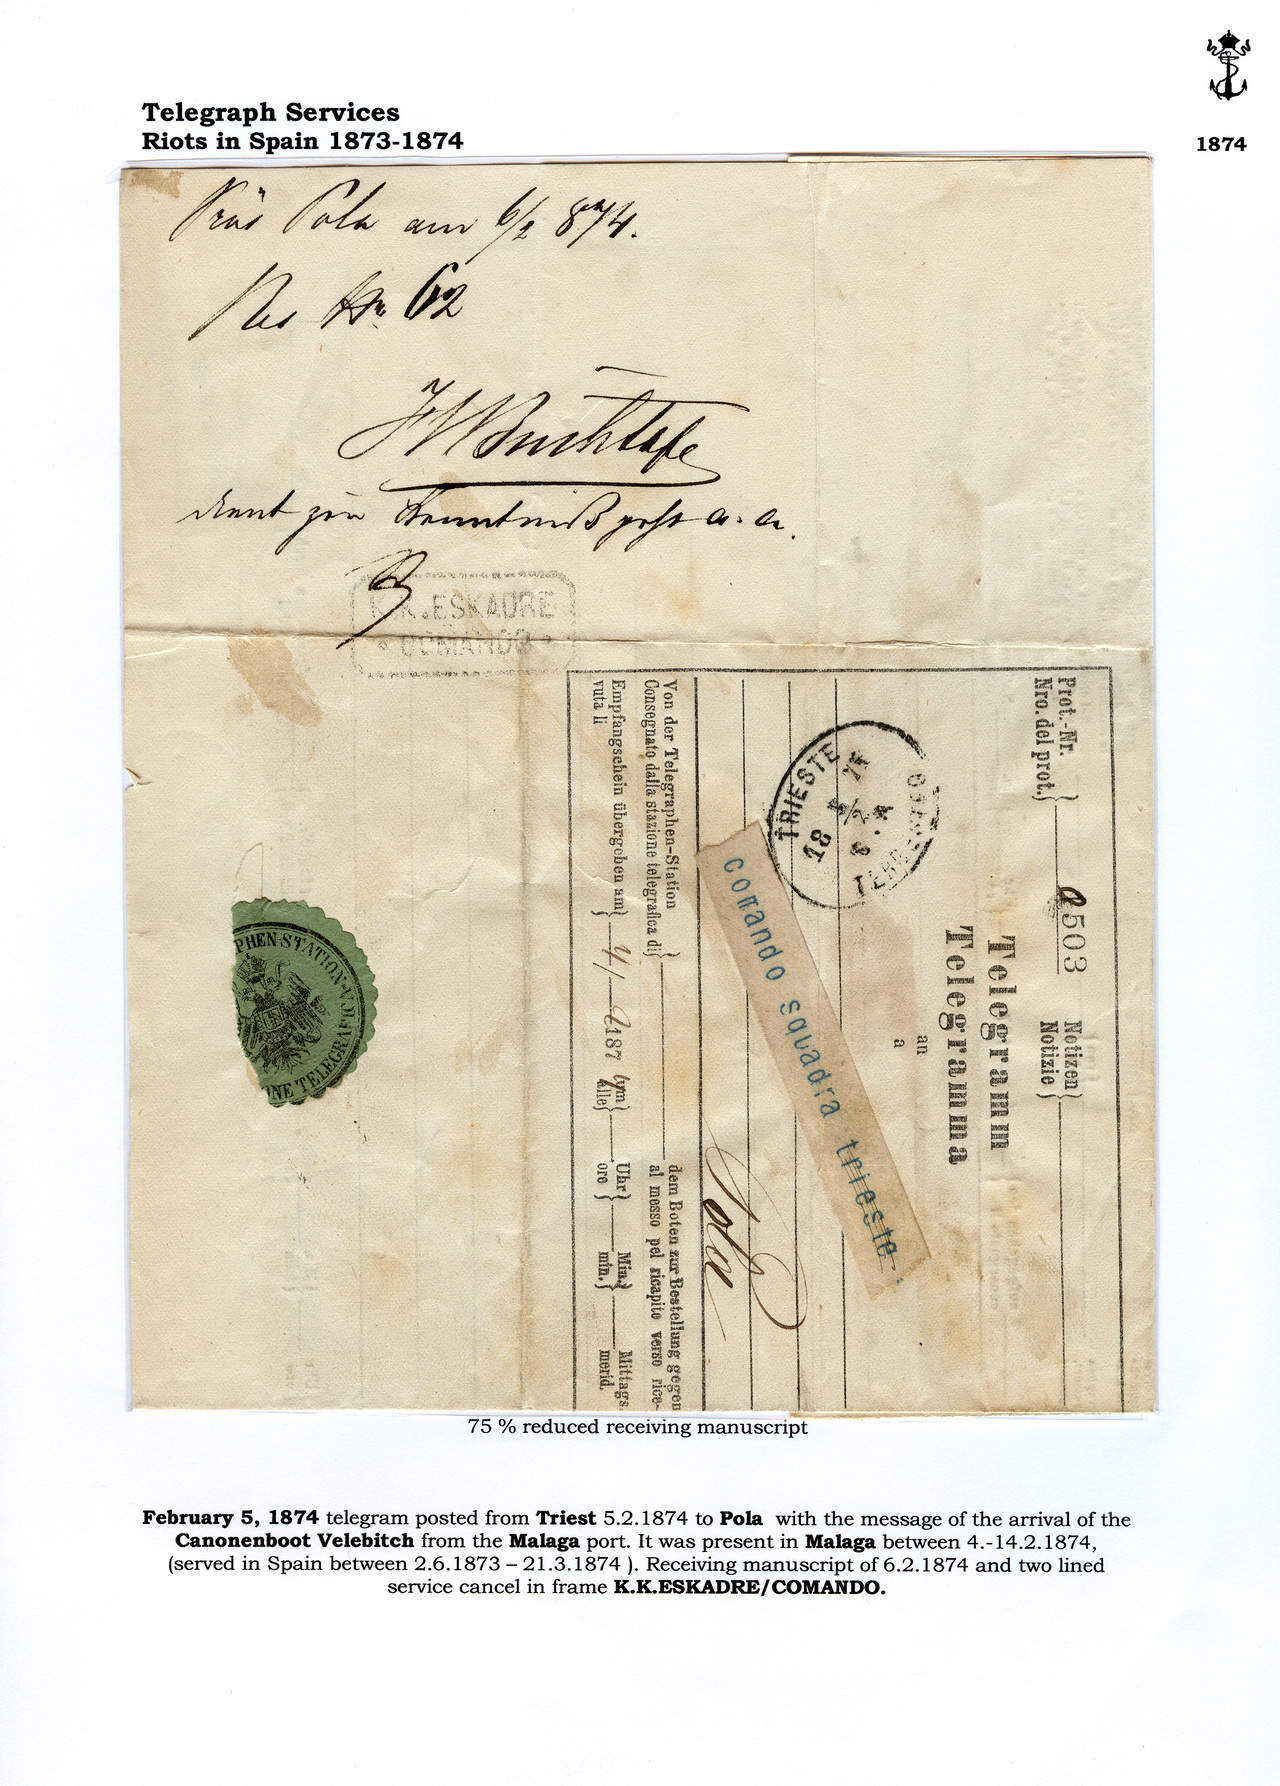 Telegraph Services
Riots in Spain 1873-1874
1874
Präs Pola am 6/2 874.
Res Nr. 62
dient zur Kenntniß geht a. a.
K.K.ESKADRE
COMANDO
Prot.-Nr.
Nro. del prot.
503
Notizen
Notizie
Telegramm
Telegramma
an
a
TRIESTE
18 5/2 74
comando squadra trieste
Pola
Von der Telegraphen-Station
Consegnato dalla stazione telegrafica di
dem Boten zur Bestellung gegen
al messo pel ricapito verso rice-
Empfangschein übergeben am
vuta li
187
um
alle
Uhr
ore
Min.
min.
Mittags.
merid.
PHEN-STATION
INE TELEGRAFICA
75 % reduced receiving manuscript
February 5, 1874 telegram posted from Triest 5.2.1874 to Pola with the message of the arrival of the
Canonenboot Velebitch from the Malaga port. It was present in Malaga between 4.-14.2.1874,
(served in Spain between 2.6.1873 – 21.3.1874 ). Receiving manuscript of 6.2.1874 and two lined
service cancel in frame K.K.ESKADRE/COMANDO.